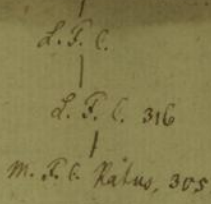 L. F. C.
L. F. C. 316
M. F. C. Pätus, 305